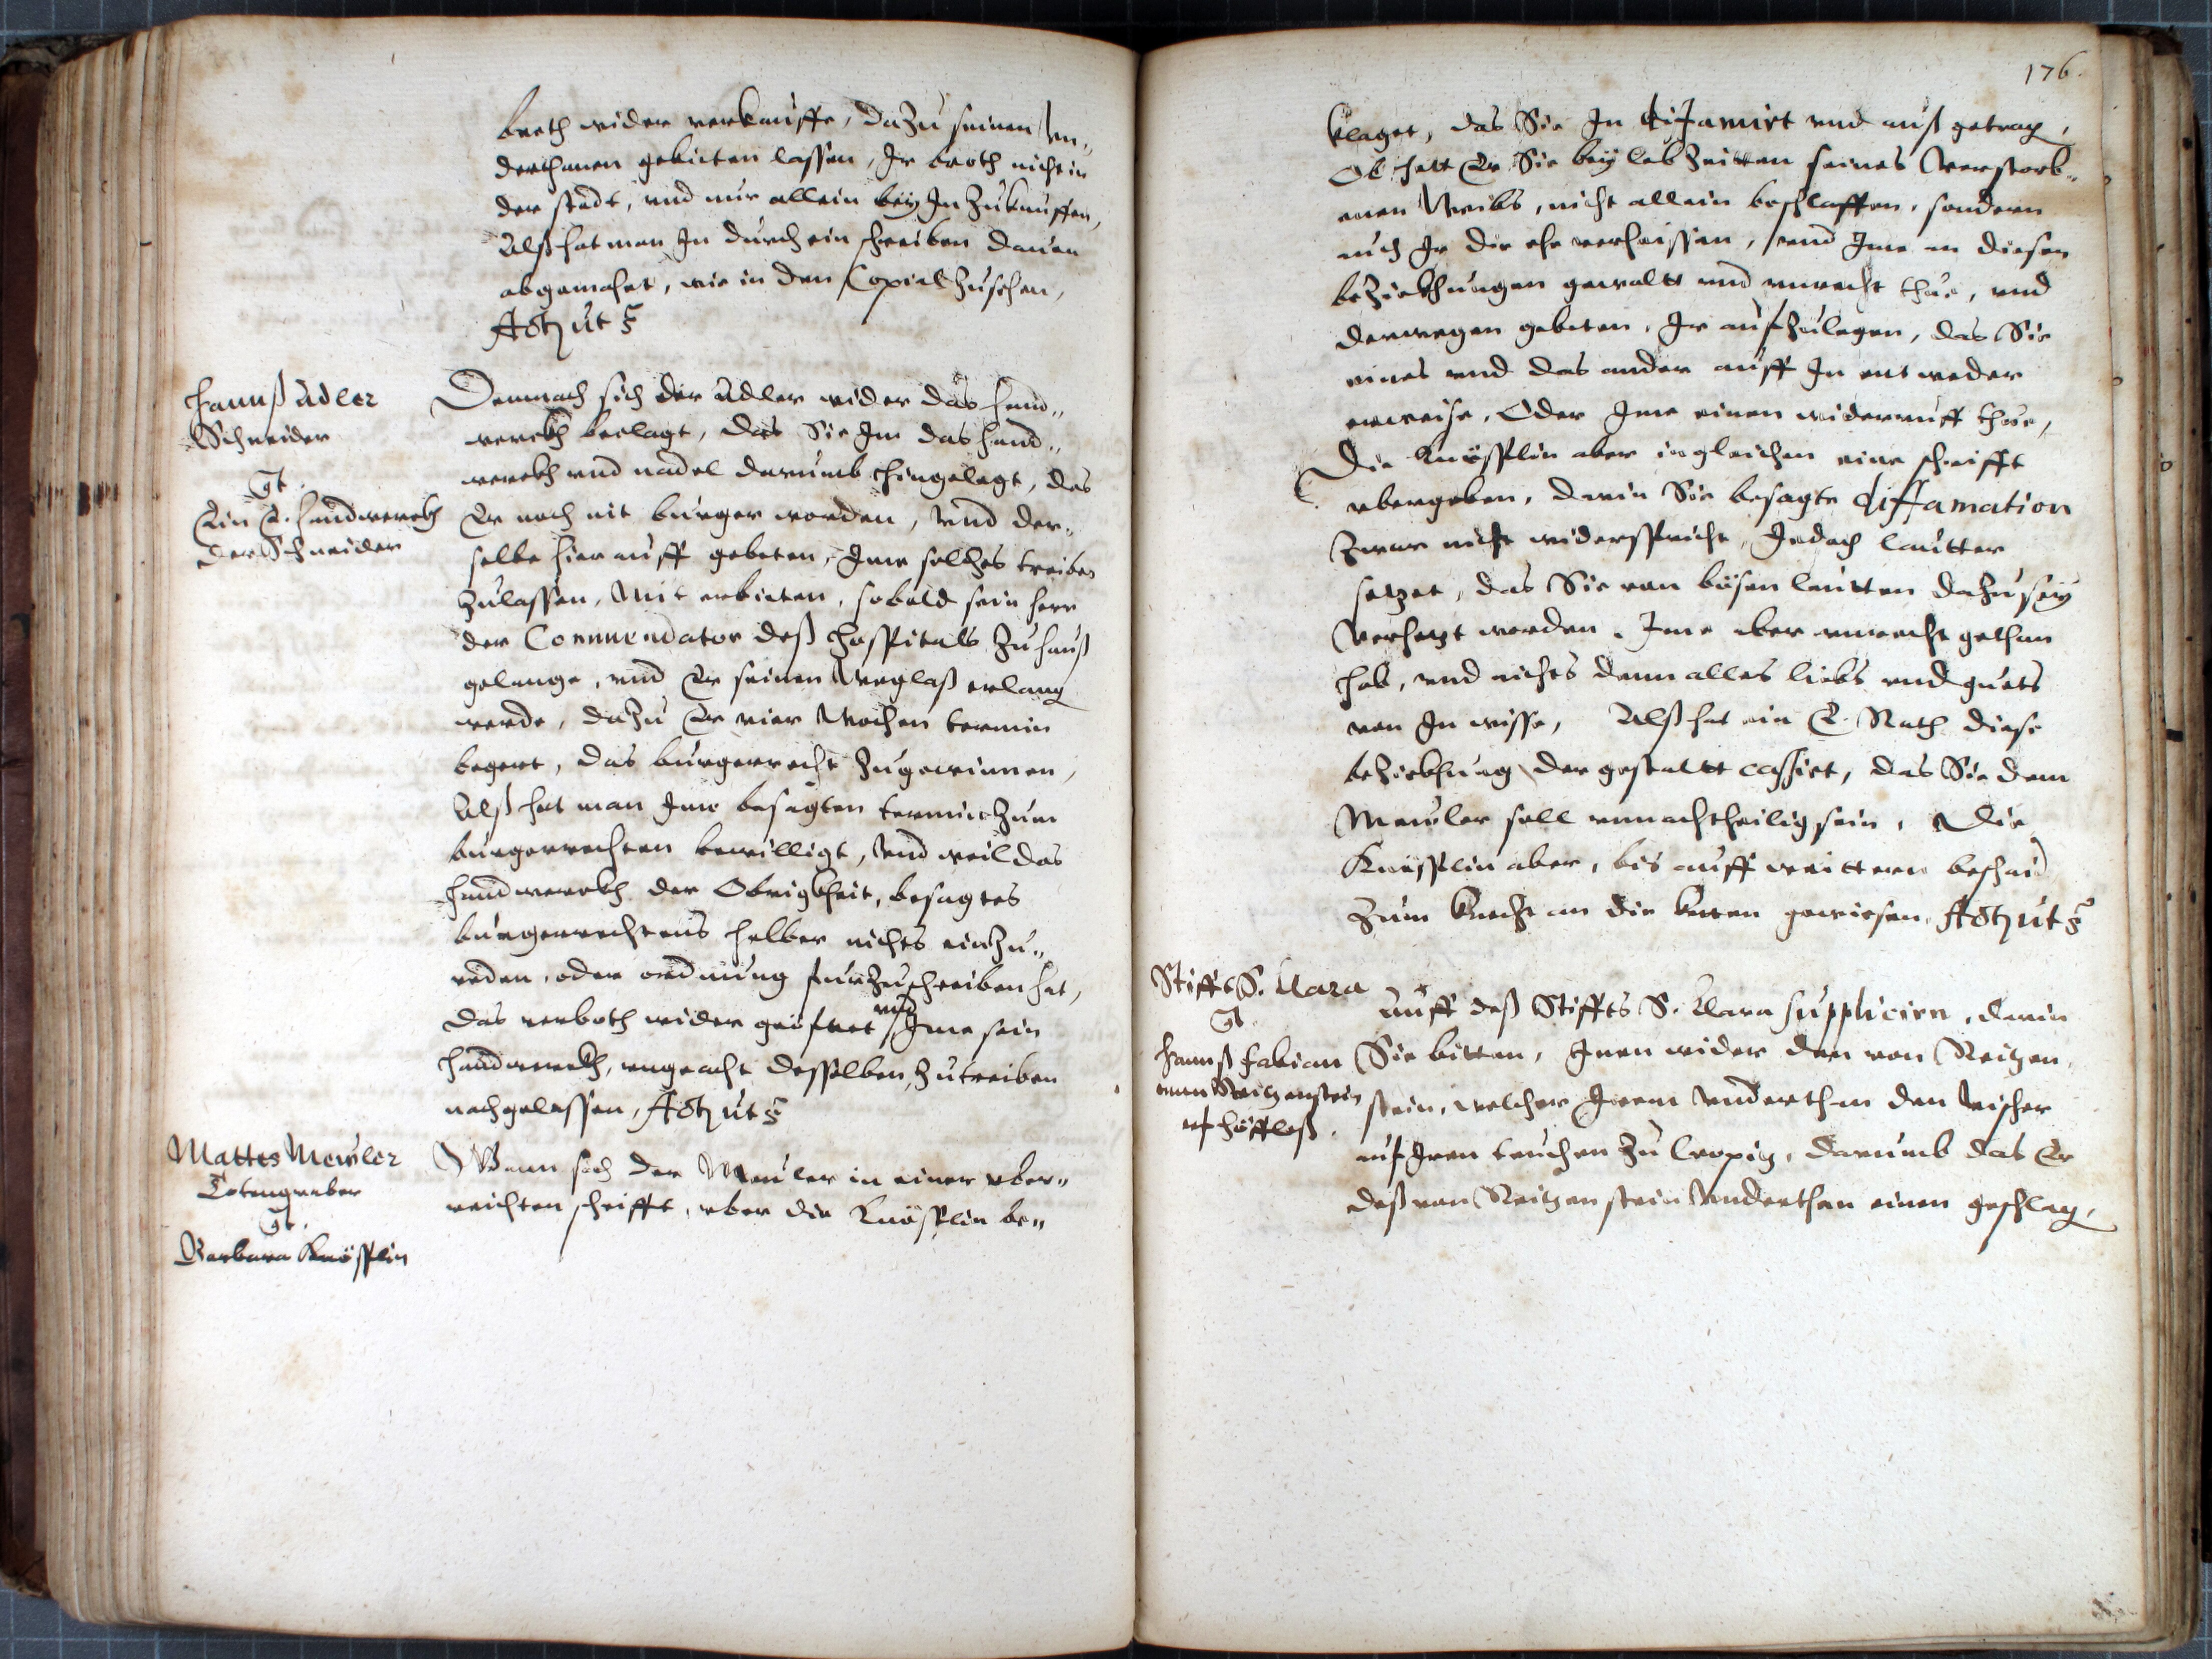 broth wider verkauffe, dazu seinen Vn„
derthanen gebieten lassen, Ir broth nicht in
der stadt, vnd nur allein bey Jn zukauffen,
Alß hat man Jn durch ein schreiben dauon
abgemahnt, wie in den Copial zusehen,
Actum ut s
Hannß Adler
Schneider
gt.
Ein E. Handwerckh
der Schneider
Demnach sich der Adler wider das hand„
werckh beclagt, das Sie Jm das hand„
werckh vnd nadel darumb hingelegt, das
Er noch nit burger worden, Vnd der„
selbe hierauff gebeten, Jme solches treiben
zulassen, Mit erbieten, sobald sein herr
der Commendator deß Hospitals zu hauß
gelange, vnd Er seinen Weglaß erlang
werde, dazu Er vier Wochen termin
begert, das burgerrecht zugewinnen,
Alß hat man Jme besagten termin zum
burgerrechten bewilligt, Vnd weil das
handwerckh der Obrigkheit, besagtes
burgerrechtens halber nichts einzu„
reden, oder ordnung furzuschreiben hat,
das verboth wider geöfnet vnd Jme sein
handwerckh, vngeacht desselben, zutreiben
nachgelassen, Actum ut s
Mattes Mewler
Totengraber
gt.
Barbara Knöfflin
Wann sich der Mewler in einer vber„
reichten schrifft, vber die Knöfflin be„
176.
klaget, das Sie Jn difamirt vnd auß getrag,
Ob hett Er Sie bey lebzeitten seines Verstorb„
enen Weibs, nicht allein beschlaffen, sondern
auch Jr die ehe verheissen, vnd Jme an diesen
bezichtungen gewalt vnd vnrecht thue, vnd
derwegen gebeten, Jr aufzulegen, das Sie
eines vnd das ander auff Jn entweder
erweise, Oder Jme einen widerruff thue,
Die Knöfflin aber ingleichen eine schrifft
vbergeben, darin Sie besagte diffamation
zwar nicht widerspricht, Jedoch lautter
setzet, das Sie von bösen leutten dazu sey
Verhetzt worden, Jme aber vnrecht gethan
hab, vnd nichts dann alles liebs vnd guets
von Jn wisse, Alß hat ein E. Rath diese
bezichtung der gestaltt cassirt, das Sie dem
Mewler soll vnnachtheilig sein, Die
Knöfflin aber, bis auff weittern beschaid
zum knecht an die keten gewiesen, Actum ut s
Stifft S. Clara
gt.
Hannß Fabian
von Reitzenstein
vf höffleß.
Auff deß Stiffts S. Clara supplicirn, darin
Sie bitten, Jnen wider den von Reitzen„
stein, welcher Jrem Vnderthan den Vischer
auf Jren teuchen zu Cropitz, darumb das Er
deß von Reitzenstein Vnderthan einen geschlag,